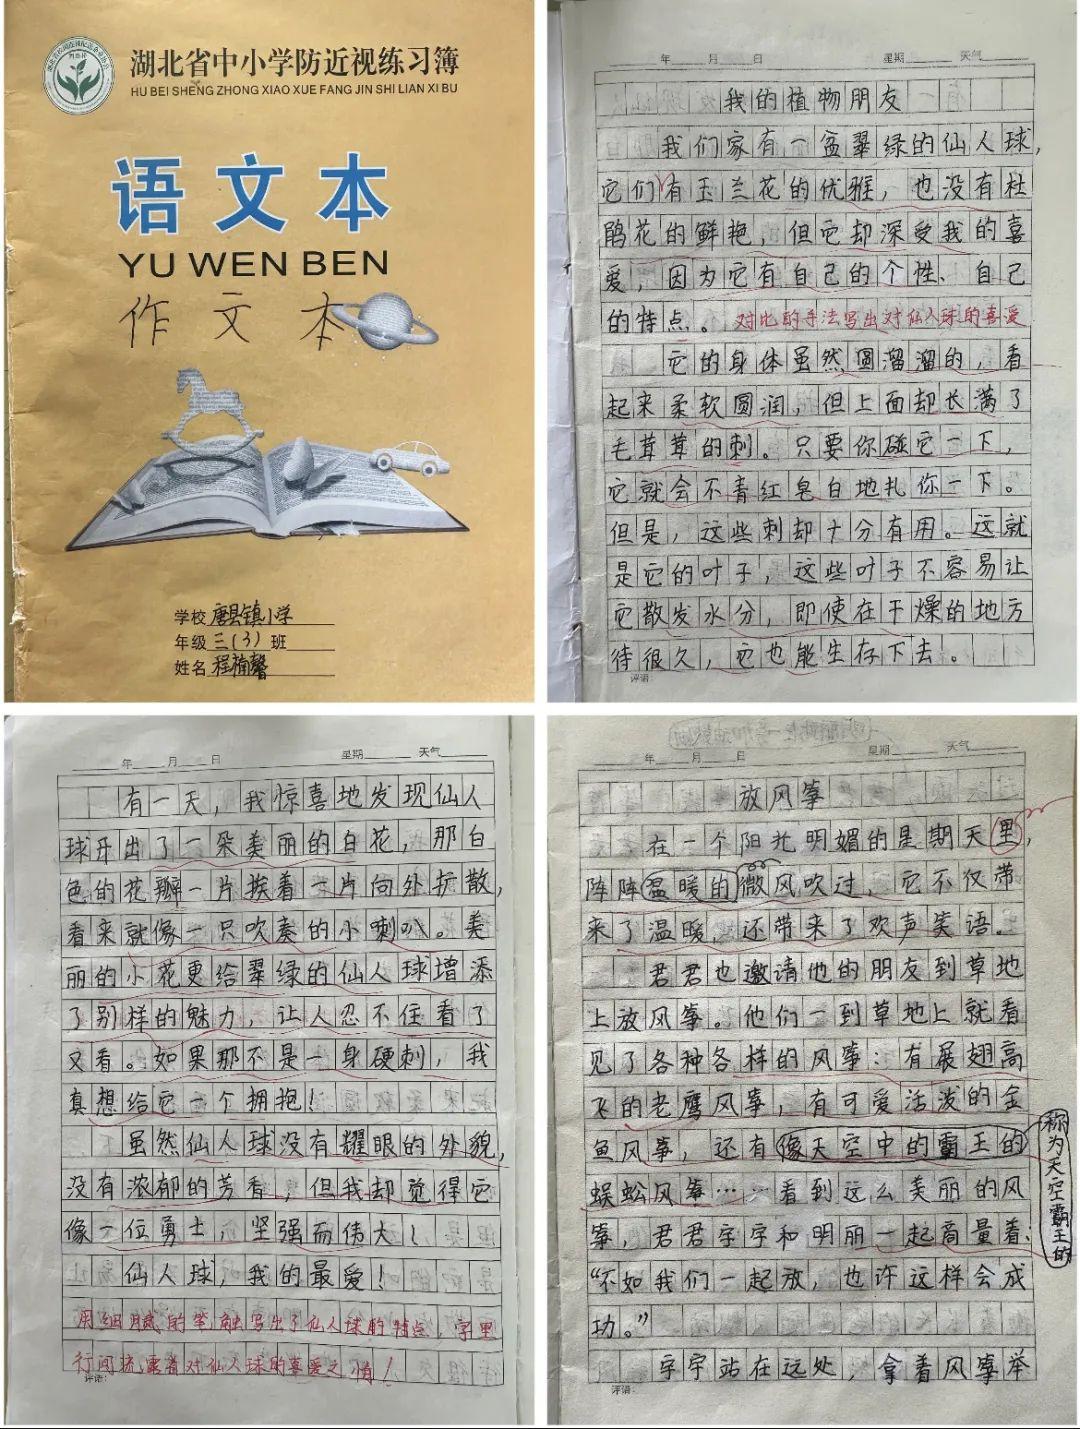 湖北省中小学防近视练习簿
HU BEI SHENG ZHONG XIAO XUE FANG JIN SHI LIAN XI BU
语文本
YU WEN BEN
作文本
学校 唐县镇小学
年级 三(3)班
姓名 程楠馨
年 月 日 星期 天气
我的植物朋友
我们家有一盆翠绿的仙人球,
它们有玉兰花的优雅，也没有杜
鹃花的鲜艳，但它却深受我的喜
爱，因为它有自己的个性、自己
的特点。对比的手法写出对仙人球的喜爱
它的身体虽然圆溜溜的，看
起来柔软圆润，但上面却长满了
毛茸茸的刺。只要你碰它一下，
它就会不青红皂白地扎你一下。
但是，这些刺却十分有用。这就
是它的叶子，这些叶子不容易让
它散发水分，即使在干燥的地方
待很久，它也能生存下去。
评语:
年 月 日 星期 天气
有一天，我惊喜地发现仙人
球开出了一朵美丽的白花，那白
色的花瓣一片挨着一片向外扩散，
看来就像一只吹奏的小喇叭。美
丽的小花更给翠绿的仙人球增添
了别样的魅力，让人忍不住看了
又看。如果那不是一身硬刺，我
真想给它一个拥抱！
虽然仙人球没有耀眼的外貌，
没有浓郁的芳香，但我却觉得它
像一位勇士，坚强而伟大！
仙人球，我的最爱！
用细腻的笔触写出了仙人球的特点，字里
行间流露着对仙人球的喜爱之情！
评语:
年 月 日 星期 天气
放风筝
在一个阳光明媚的星期天里，
阵阵温暖的微风吹过，它不仅带
来了温暖，还带来了欢声笑语。
君君也邀请他的朋友到草地
上放风筝。他们一到草地上就看
见了各种各样的风筝：有展翅高
飞的老鹰风筝，有可爱活泼的金
鱼风筝，还有像天空中的霸王的
称为天空霸王的
蜈蚣风筝……看到这么美丽的风
筝，君君宇宇和明丽一起商量着：
“不如我们一起放，也许这样会成
功。”
宇宇站在远处，拿着风筝举
评语: